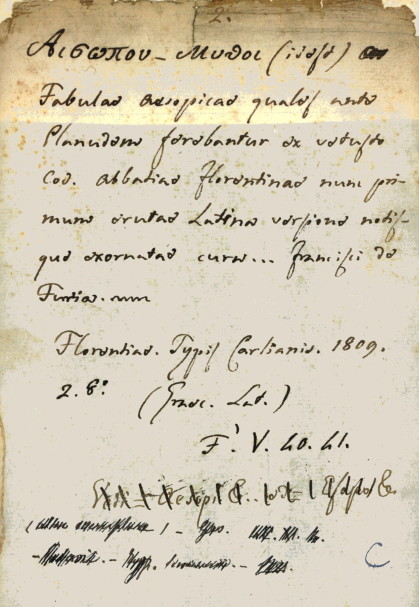 2.
Αισωπου - Μυθοι (idest)
Fabulae aesopicae quales ante
Planudem ferebantur ex vetusto
Cod. abbatiae florentinae nunc pri-
mum erutae Latina versione notis-
que exornatae cura... francisci de
Furia.
Florentiae. Typis Carlianis. 1809.
2. 8º. (Graec. Lat.)
F. V. 40. 41.
C